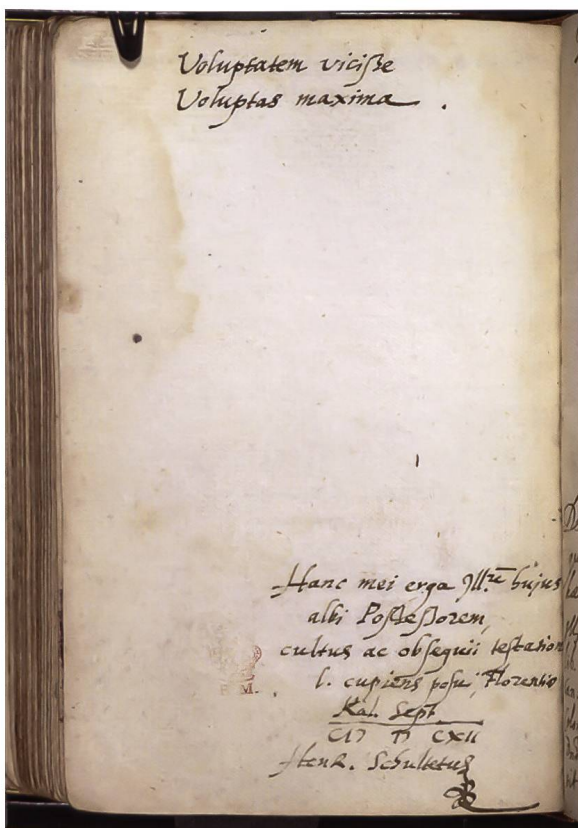 Voluptatem vicisse
Voluptas maxima .
Hanc mei erga Ill.re hujus
albi Possessorem,
cultus ac obsequii testation
l. cupiens posui, Florentiæ
Kal. Sept.
CIↃ IↃ CXII
Henr. Schultetus